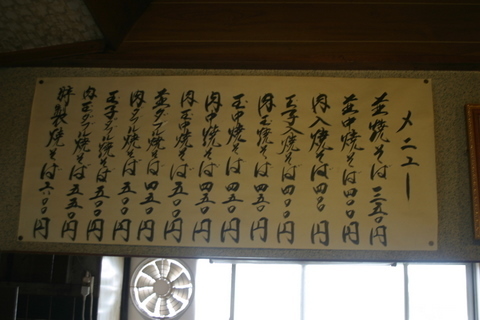 メニュー
並焼そば 三五〇円
並中焼そば 四〇〇円
肉入焼そば 四〇〇円
玉子入焼そば 四〇〇円
肉玉焼そば 四五〇円
玉中焼そば 四五〇円
肉中焼そば 四五〇円
肉玉中焼そば 五〇〇円
並ダブル焼そば 四五〇円
肉ダブル焼そば 五〇〇円
玉子ダブル焼そば 五〇〇円
肉玉ダブル焼そば 五五〇円
特製焼そば 六〇〇円